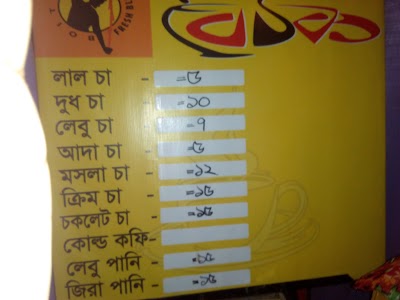 বৈঠক
লাল চা - =৫
দুধ চা - =১০
লেবু চা - =৭
আদা চা - =৫
মসলা চা - =১২
ক্রিম চা - =১৫
চকলেট চা - =১৫
কোল্ড কফি-
লেবু পানি -
জিরা পানি - =১৫